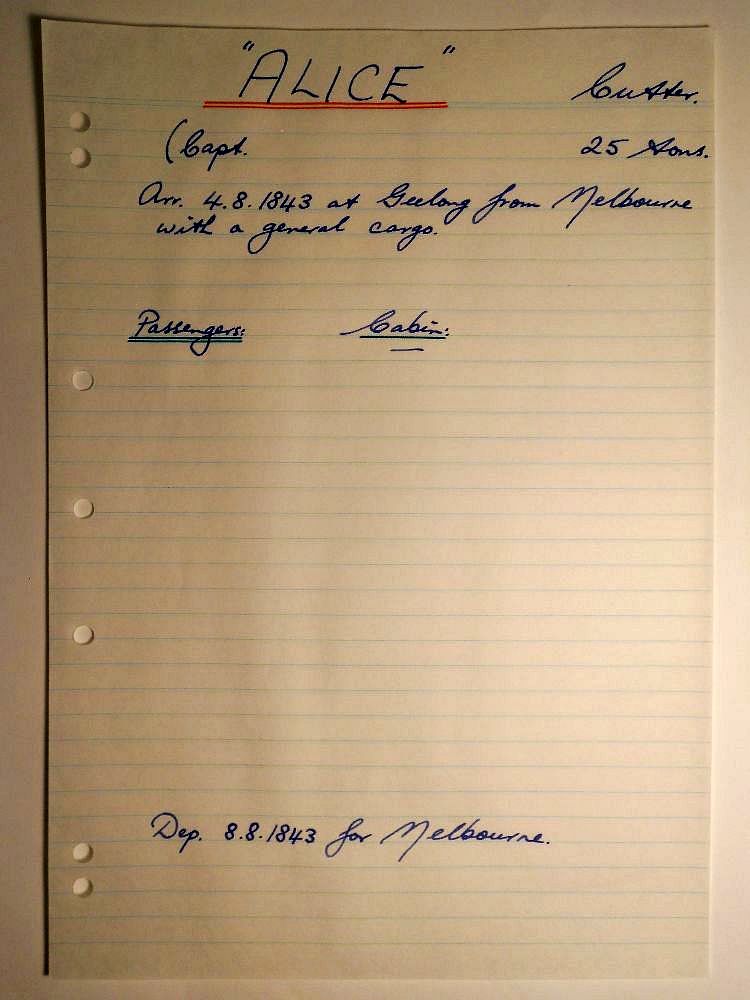 "ALICE"
Cutter.
(Capt.
25 tons.
Arr. 4.8.1843 at Geelong from Melbourne
with a general cargo.
Passengers: Cabin:
Dep. 8.8.1843 for Melbourne.